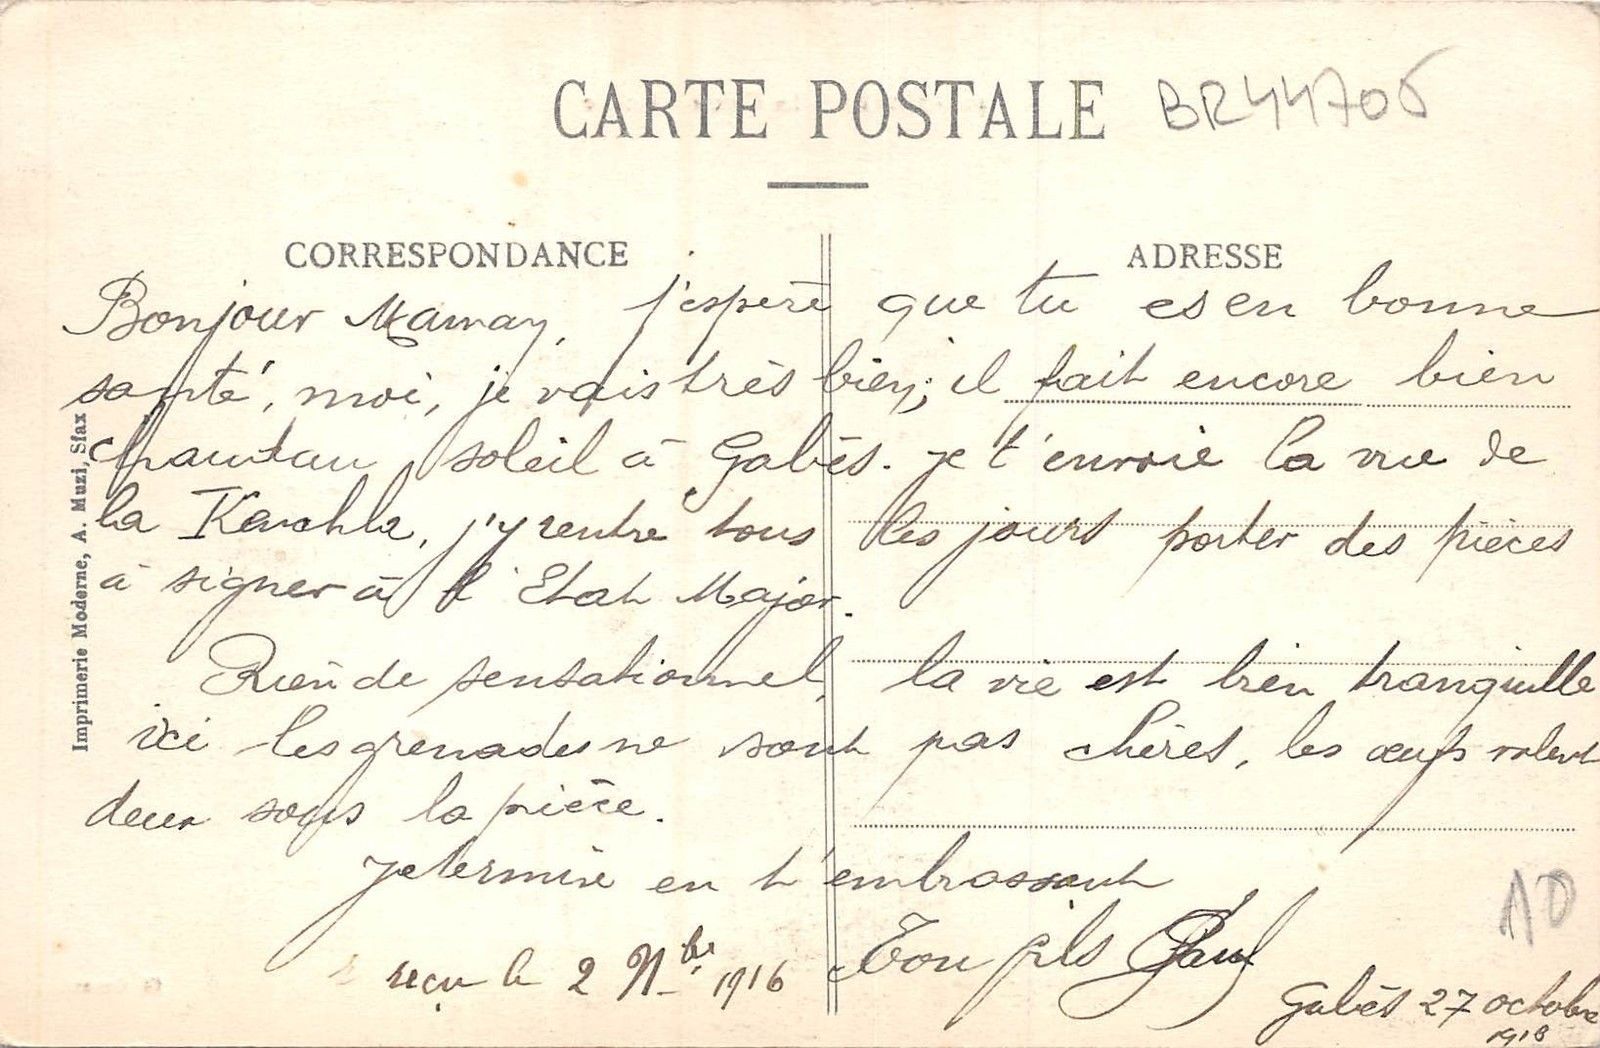 CARTE POSTALE
BR44706
CORRESPONDANCE
ADRESSE
Bonjour Maman, j'espère que tu es en bonne
santé, moi, je vais très bien; il fait encore bien
chaud au soleil à Gabès. je t'envoie la vue de
la j'y rentre tous les jours porter des pièces
à signer à l'Etat Major.
Rien de sensationnel, la vie est bien tranquille
ici les grenades ne sont pas chères, les œufs valent
deux sous la pièce.
je termine en t'embrassant
Ton fils Paul
Gabès 27 octobre
reçu le 2 Nbre 1916
10
Imprimerie Moderne, A. Muzi, Sfax